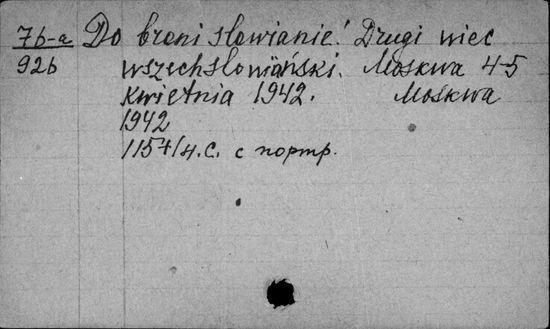 7b-a Do broni słowiánie! Drugi wiec
92b wszechsłowiański. Moskwa 4-5
kwietnia 1942. Moskwa
1942
115+1н.с. с портр.